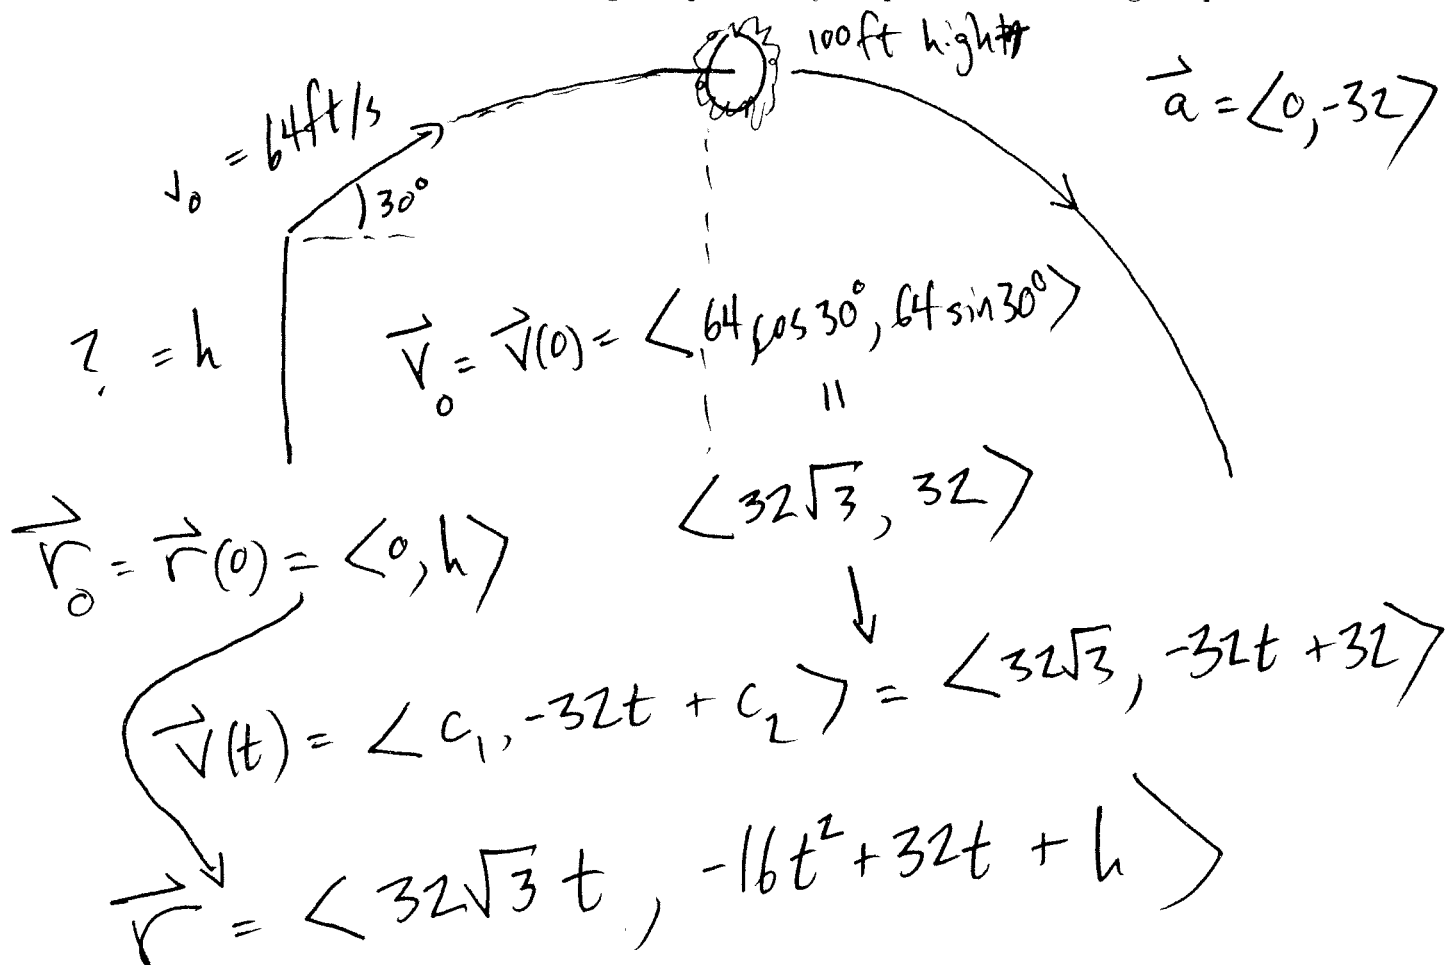 100ft high
a⃗ = ⟨0, -32⟩
v₀ = 64ft/s
30°
? = h
v⃗₀ = v⃗(0) = ⟨64 cos 30°, 64 sin 30°⟩
=
⟨32√3, 32⟩
r⃗₀ = r⃗(0) = ⟨0, h⟩
v⃗(t) = ⟨c₁, -32t + c₂⟩ = ⟨32√3, -32t + 32⟩
r⃗ = ⟨32√3 t, -16t² + 32t + h⟩